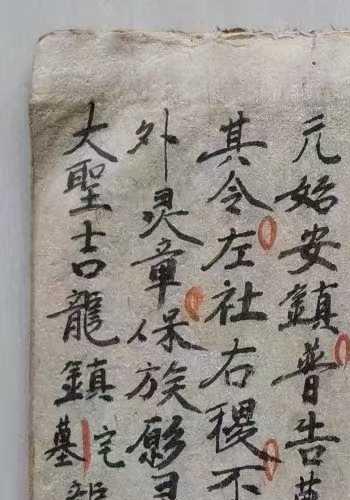 元始安鎮普告萬
其令左社右稷不
外灵章保族
大聖吉龍鎮宅墓